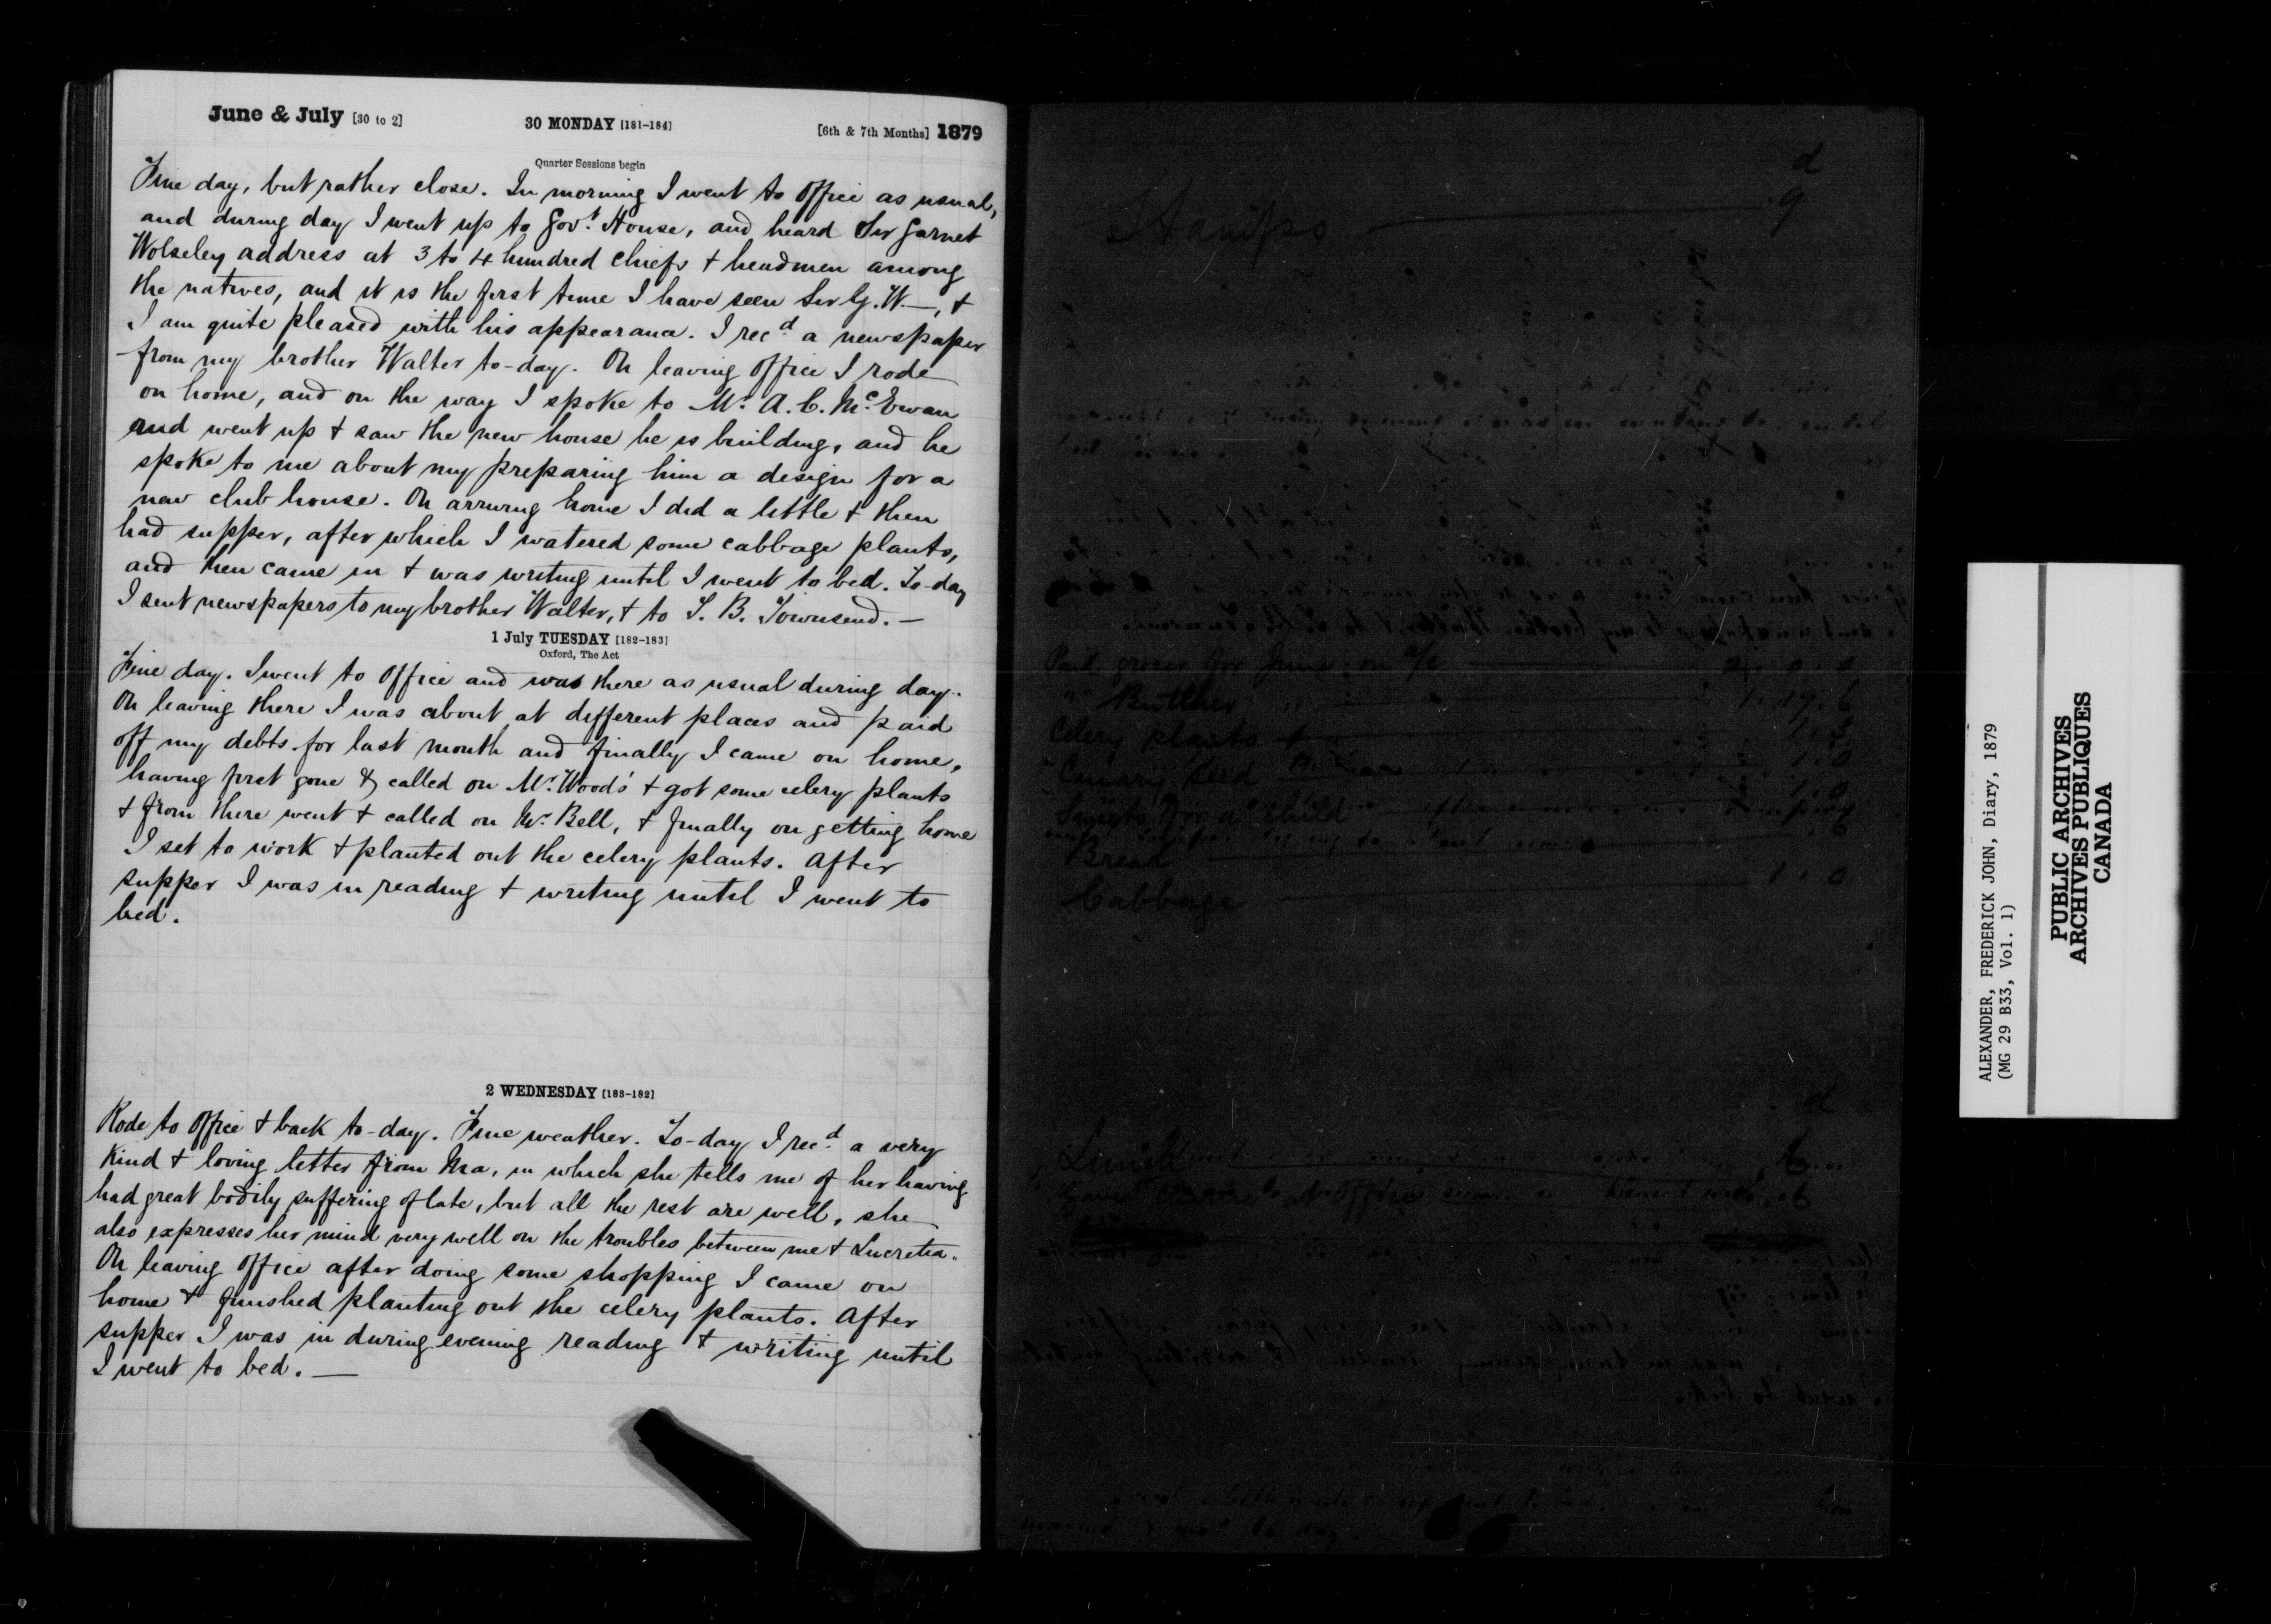 June & July [30 to 2]
30 MONDAY [181-184]
[6th & 7th Months] 1879
Quarter Sessions begin
Fine day, but rather close. In morning I went to Office as usual,
and during day I went up to Govt. House, and heard Sir Garnet
Wolseley address at 3 to 4 hundred chiefs + headmen among
the natives, and it is the first time I have seen Sir G. W.—, +
I am quite pleased with his appearance. I recd. a newspaper
from my brother Walter to-day. On leaving office I rode
on home, and on the way I spoke to Mr. A. C. McEwan
and went up + saw the new house he is building, and he
spoke to me about my preparing him a design for a
new club house. On arriving home I did a little + then
had supper, after which I watered some cabbage plants,
and then came in + was writing until I went to bed. To-day
I sent newspapers to my brother Walter, + to S. B. Townsend. —
1 July TUESDAY [182-183]
Oxford, The Act
Fine day. I went to Office and was there as usual during day.
On leaving there I was about at different places and paid
off my debts for last month and finally I came on home,
having first gone & called on Mr. Woods' + got some celery plants
+ from there went + called on Mr. Bell, + finally on getting home
I set to work + planted out the celery plants. After
supper I was in reading + writing until I went to
bed.
2 WEDNESDAY [183-182]
Rode to Office + back to-day. Fine weather. To-day I recd. a very
kind + loving letter from Ma, in which she tells me of her having
had great bodily suffering of late, but all the rest are well, she
also expresses her mind very well on the troubles between me + Lucretia.
On leaving office after doing some shopping I came on
home + finished planting out the celery plants. After
supper I was in during evening reading + writing until
I went to bed. —
d
Stamps — 9
Paid grocer for June on a/c 2 . 0 . 0
" Butcher " 1 . 17 . 6
Celery plants 1 . 3
Canary Seed 1 . 0
for child 1 . 0
Bread 6
Cabbage — 1 . 0
d
ALEXANDER, FREDERICK JOHN, Diary, 1879
(MG 29 B33, Vol. 1)
PUBLIC ARCHIVES
ARCHIVES PUBLIQUES
CANADA